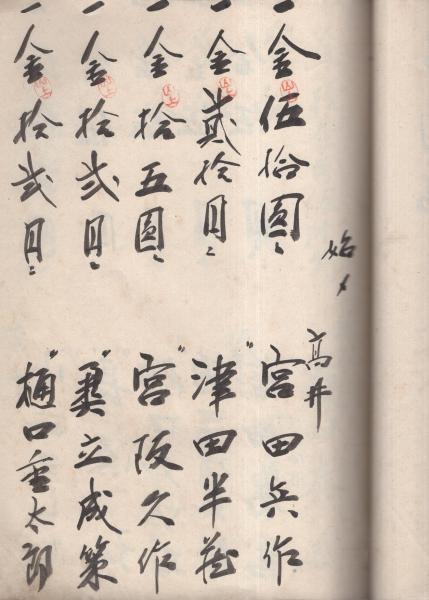 始メ
一金伍拾圓 高井 宮田兵作
一金貳拾円 〃津田半蔵
一金拾五圓 〃宮阪久作
一金拾弐円 〃立成策
一金拾弐円 〃樋口重太郎